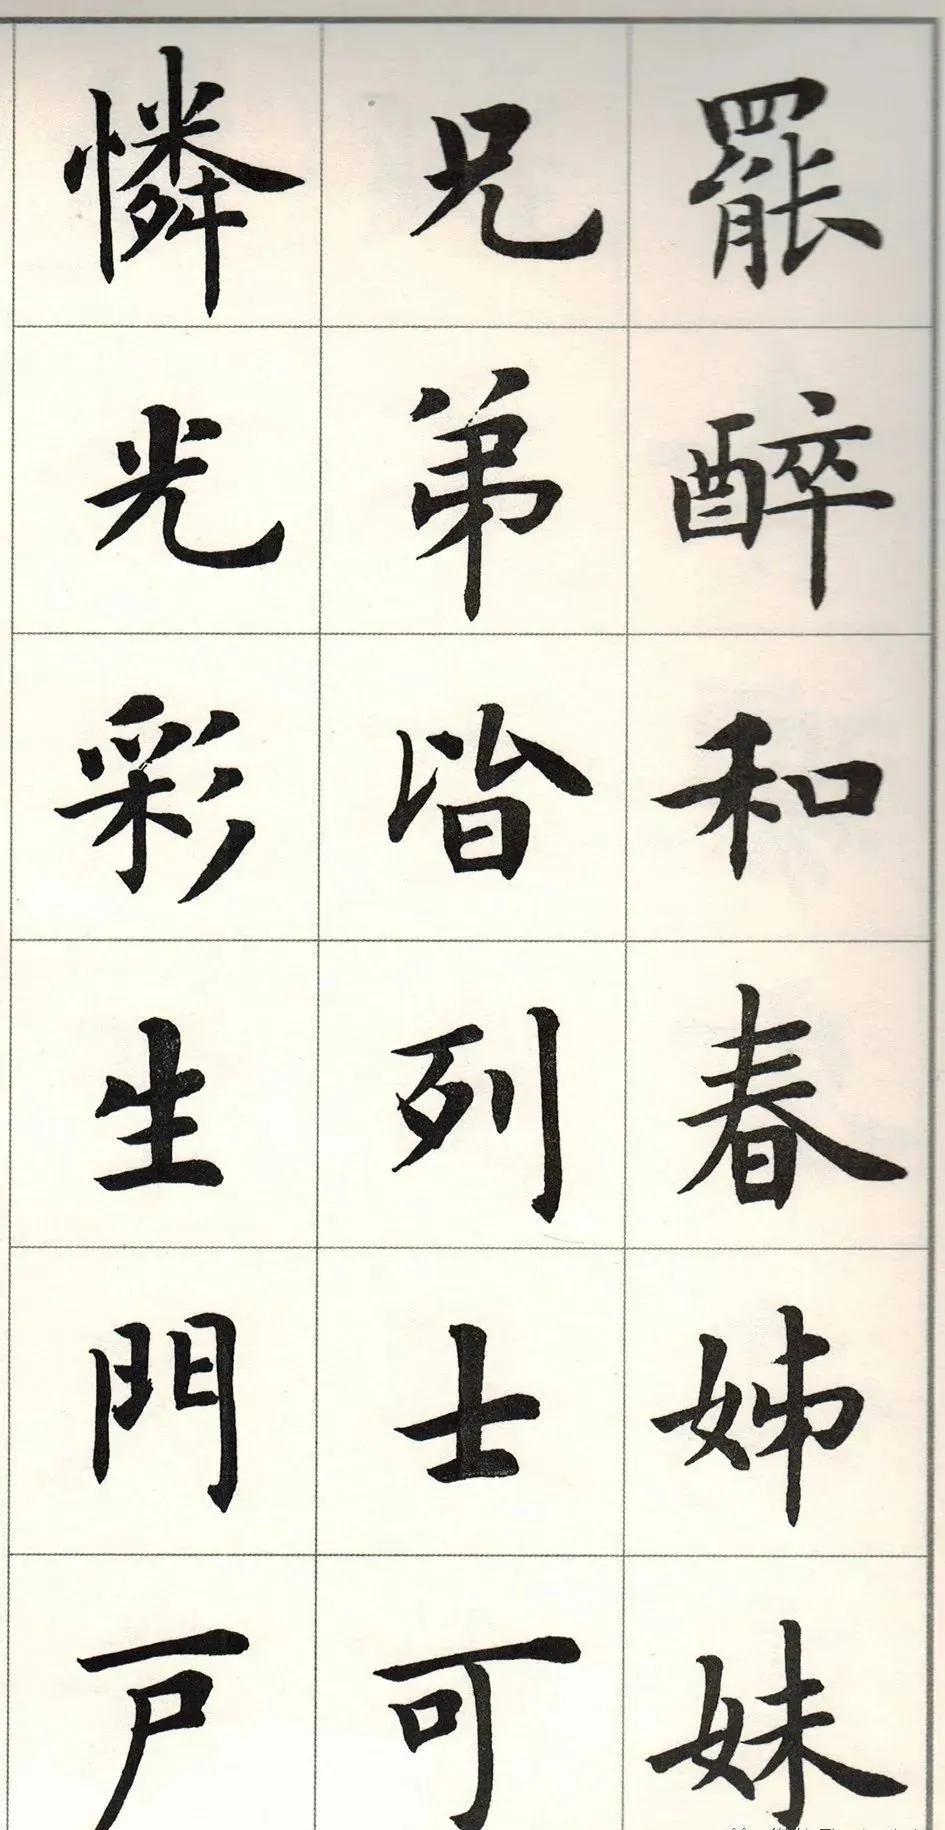 罷醉和春姊妹
兄弟皆列士可
憐光彩生門戸